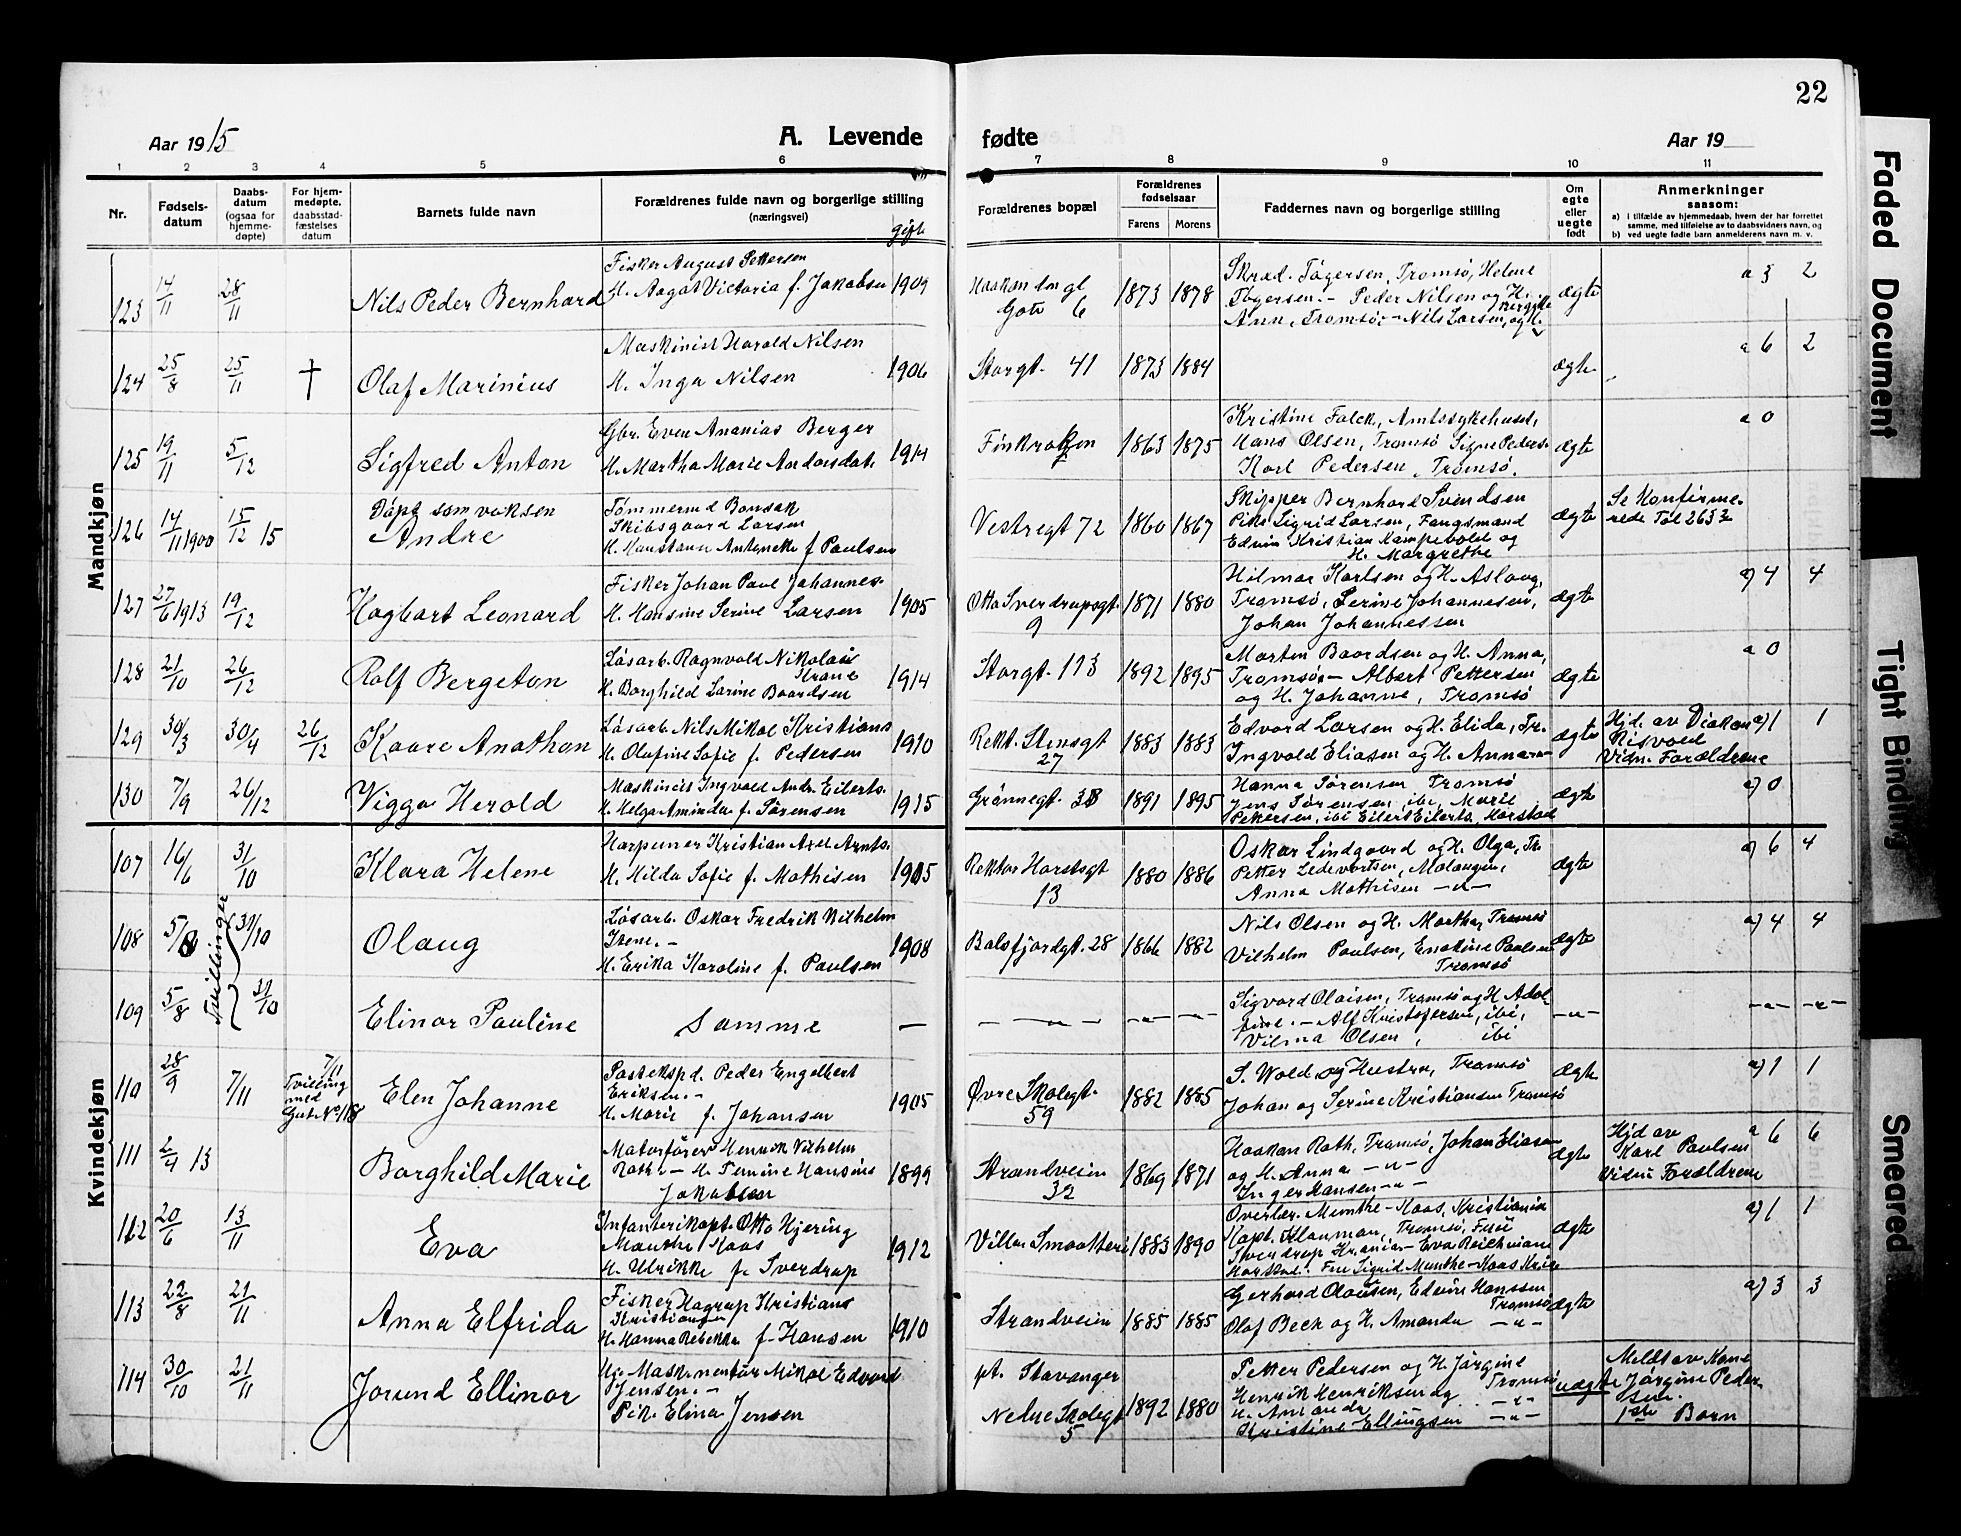 22
Aar 1915
A. Levende
fødte
Aar 19
1 2 3 4 5 6 7 8 9 10 11
Nr.
Fødsels-
datum
Daabs-
datum
(ogsaa for
hjemme-
døpte)
For hjem-
medøpte,
daabsstad-
fæstelses
datum
Barnets fulde navn
Forældrenes fulde navn og borgerlige stilling
(næringsvei)
gift
Forældrenes bopæl
Forældrenes
fødselsaar
Farens Morens
Faddernes navn og borgerlige stilling
Om
egte
eller
uegte
født
Anmerkninger
saasom:
a) i tilfælde av hjemmedaab, hvem der har forrettet
samme, med tilføielse av to daabsvidners navn, og
b) ved uegte fødte barn anmelderens navn m. v.
Mandkjøn
123 14/11 28/11 Nils Peder Bernhard
Fisker August Pettersen
H. Aagot Victoria f. Jakobsen 1909
6 1873 1878
Skræd. Tøgersen, Tromsø, Helene
Tøgersen.- Peder Nilsen og H.
Ann, Tromsø,- Nils Larsen, og H.
ægte a 3 2
124 25/8 25/11 † Olaf Marinius
Maskinist Harald Nilsen
H. Inga Nilsen 1906
Storgt. 41 1873 1884 ægte a 6 2
125 19/11 5/12 Sigfred Anton
Gbr. Even Ananias Berger
H. Martha Marie Andorsdat. 1914
Finkroken 1863 1875
Kristine Falck, Amtssykehuset,
Hans Olsen, Tromsø Signe Peders.
Karl Pedersen, Tromsø.
ægte a 0
126 14/11 1900 15/12 15
Døpt som voksen
Andre
Tømmermd Bonsak
Skibsgaard Larsen
H. Hanstann Antonette f Paulsen
Vestregt 72 1860 1867
Skipper Bernhard Svendsen
Pike Sigrid Larsen, Fangsmand
Edvin Kristian Kampevold og
H. Margrethe
ægte
Se Konfirme-
rede Tøl 2632
127 27/6 1913 19/12 Hagbart Leonard
Fisker Johan Paul Johannes.
H. Hansine Serine Larsen 1905
Otto Sverdrupsgt.
9 1871 1880
Hilmar Karlsen og H. Aslaug,
Tromsø, Serine Johannesen,
Johan Johannessen
ægte a) 4 4
128 21/10 26/12 Rolf Bergeton
Løsarb. Ragnvald Nikolai
Hrane
H. Borghild Larine Baardsen 1914
Storgt. 113 1892 1895
Morten Baardsen og H. Anna,
Tromsø:- Albert Pettersen
og H. Johanne, Tromsø
ægte a 0
129 30/3 30/4 26/12 Kaare Anathon
Løsarb. Nils Mikal Kristians
H. Olufine Sofie f. Pedersen 1910
Rekt. Stensgt
27 1883 1883
Edvard Larsen og H. Elida, Tr.
Ingvald Eliasen og H. Anna
ægte
Hjd. av Diakon
Risvold
Vidn. Forældrene
a) 1 1
130 7/9 26/12 Viggo Herold
Maskinist Ingvald Andr. Eilerts.
H. Helga Aminda f. Sørensen 1915
Grønnegt. 38 1891 1895
Hanna Sørensen Tromsø
Jens Sørensen, ibi, Marie
Pettersen, ibi Eilert Eilerts, Harstad
ægte a) 0
Kvindekjøn
107 16/6 31/10 Klara Helene
Harpuner Kristian Axel Arnts.
H. Hilda Sofie f. Mathisen 1905
Rektor Horstsgt
13 1880 1886
Oskar Lindgaard og H. Olga, Tr.
Petter Zedevartsen, Malangen,
Anna Mathisen -"-
ægte a) 6 4
Tvillinger
108 5/8 31/10 Olaug
Løsarb. Oskar Fredrik Vilhelm
Stene.-
H. Erika Karoline f. Paulsen 1908
Balsfjordgt. 28 1866 1882
Nils Olsen og H. Martha, Tromsø
Vilhelm Paulsen, Enokine Paulsen
Tromsø
ægte a) 4 4
109 5/8 31/10 Elinor Pauline
Samme —
- -"- -"- -"-
Sigvard Olaisen, Tromsø og H. Adol-
fine.- Alf Kristofersen, ibi,
Vilma Olsen, ibi
-"- -"- -"-
110 28/9 7/11
7/11
Tvilling
med
Gut No 118
Elen Johanne
Postekspd. Peder Engelbert
Eriksen.-
H. Marie f. Johansen 1905
Øvre Skolegt.
59 1882 1885
S. Wold og Hustru, Tromsø
Johan og Serine Kristiansen Tromsø
ægte a) 1 1
111 2/4 13 Borghild Marie
Motorfører Henrik Vilhelm
Rath - H. Temine Hansine
Jakobsen 1899
Strandveien
32 1869 1871
Haakon Rath, Tromsø, Johan Eliasen
og H. Anna -"-
Inger Hansen -"-
ægte
Hjd av
Karl Paulsen
Vidni Forældrene
a 6 6
112 20/6 13/11 Eva
Infanterikapt. Otto Hjering
Munthe Kaas
H. Ulrikke f. Sverdrup 1912
1883 1890
Overlær. Munthe-Kaas, Kristiania
Kapt. Klauman, Tromsø, Frøk
Sverdrup Krania- Eva Reichmann
Harstad. Fru Sigrid Munthe-Kaas Kria
ægte a) 1 1
113 22/8 21/11 Anna Elfrida
Fisker Hagrup Kristians
Kristiansen
H. Hanna Rebekka f. Hansen 1910
Strandveien 1885 1885
Gerhard Olausen, Edvine Hanssen
Tromsø
Olaf Beck og H. Amanda -"-
ægte a) 3 3
114 30/10 21/11 Jorund Ellinor
Ug. Maskinmontør Mikal Edvard
Jensen.-
Pik. Elina Jensen
pt. Stavanger
Nedre Skolegt
5 1892 1880
Petter Pedersen og H. Jørgine
Henrik Henriksen og Tromsø
H. Amanda -"-
Kristine Ellingsen -"-
uægte
Meldt av Kone
Jørgine Peder-
sen.
1ste Barn
Faded Document
Tight Binding
Smeared